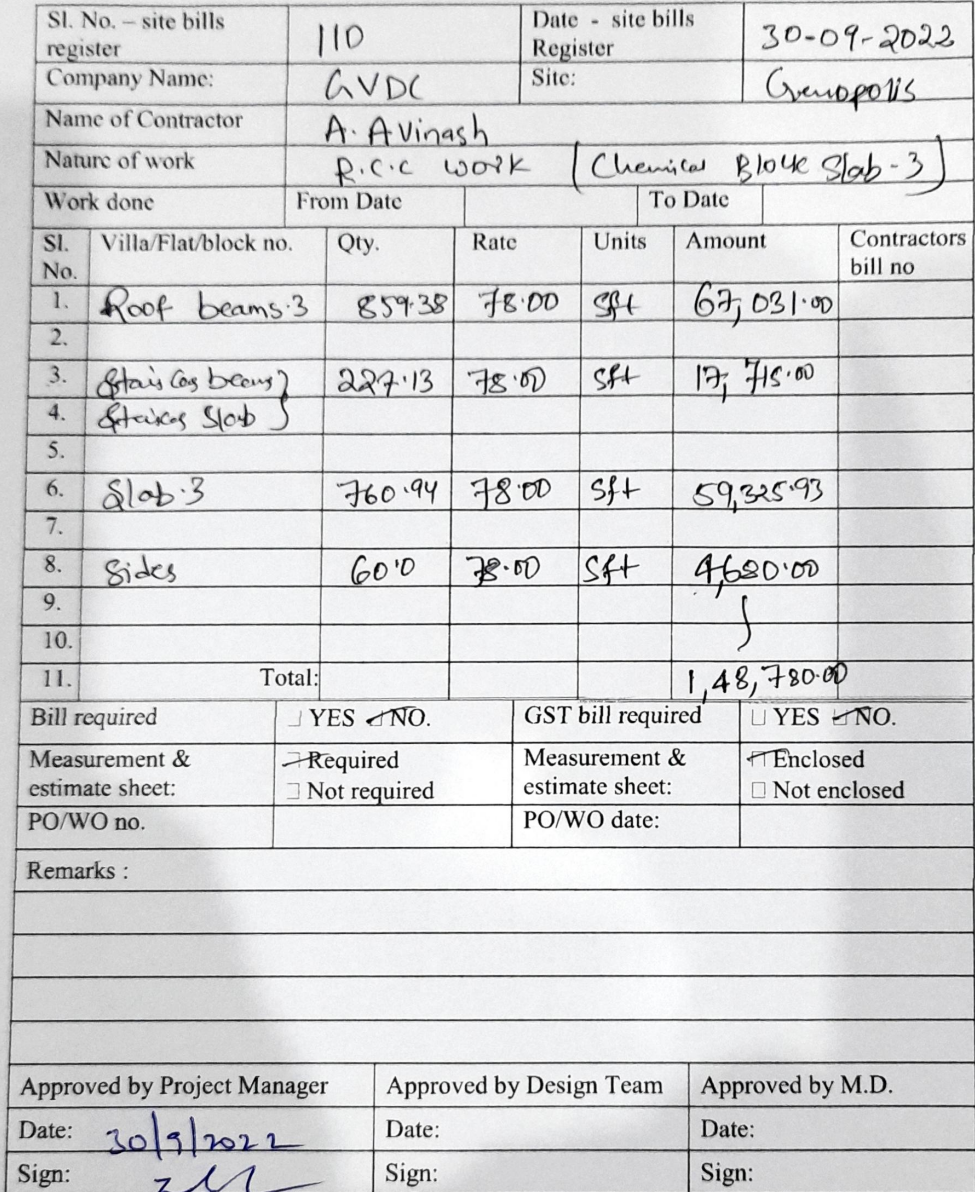 Sl. No. – site bills register 110 Date - site bills Register 30-09-2022
Company Name: GVDC Site: Genopolis
Name of Contractor A. Avinash
Nature of work R.C.C work (Chemical Block Slab-3)
Work done From Date To Date
Sl. No. Villa/Flat/block no. Qty. Rate Units Amount Contractors bill no
1. Roof beams.3 859.38 78.00 Sft 67,031.00
2.
3. Staircas beams } 227.13 78.00 Sft 17,715.00
4. Staircas Slab }
5.
6. Slab.3 760.94 78.00 Sft 59,325.93
7.
8. Sides 60.0 78.00 Sft 4,680.00
9.
10.
11. Total: 1,48,780.00
Bill required YES NO. GST bill required YES NO.
Measurement & estimate sheet: Required Measurement & estimate sheet: Enclosed
Not required Not enclosed
PO/WO no. PO/WO date:
Remarks :
Approved by Project Manager Approved by Design Team Approved by M.D.
Date: 30/9/2022 Date: Date:
Sign: Sign: Sign: